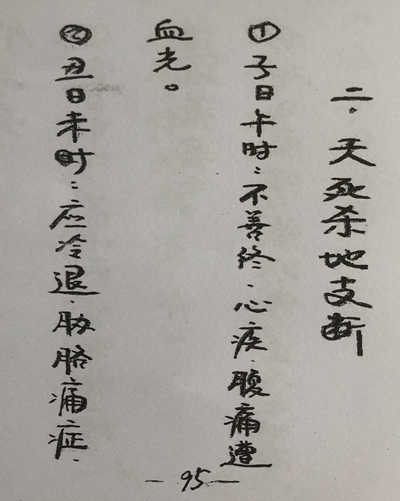 二.天死杀地支断
①子日卡时:不善终.心疾.腹痛遭
血光。
②丑日未时:应冷退.胁胳痛症.
—95—